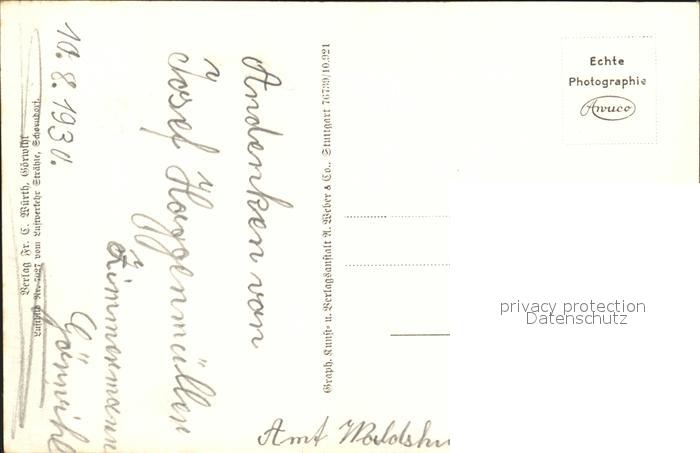 Andenken von
Josef Haggenmüller
Zimmermann
Görwihl
10.8.1930.
Amt Waldshu
Verlag Fr. C. Würth, Görwihl
Luftbild Nr. vom Luftverkehr Strähle, Schorndorf.
Graph. Kunst- u. Verlagsanstalt A. Weber & Co., Stuttgart 76739/10,921
Echte
Photographie
Awuco
privacy protection
Datenschutz